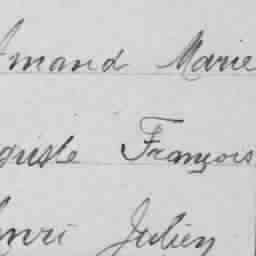 Amand Marie
Auguste François
Henri Julien